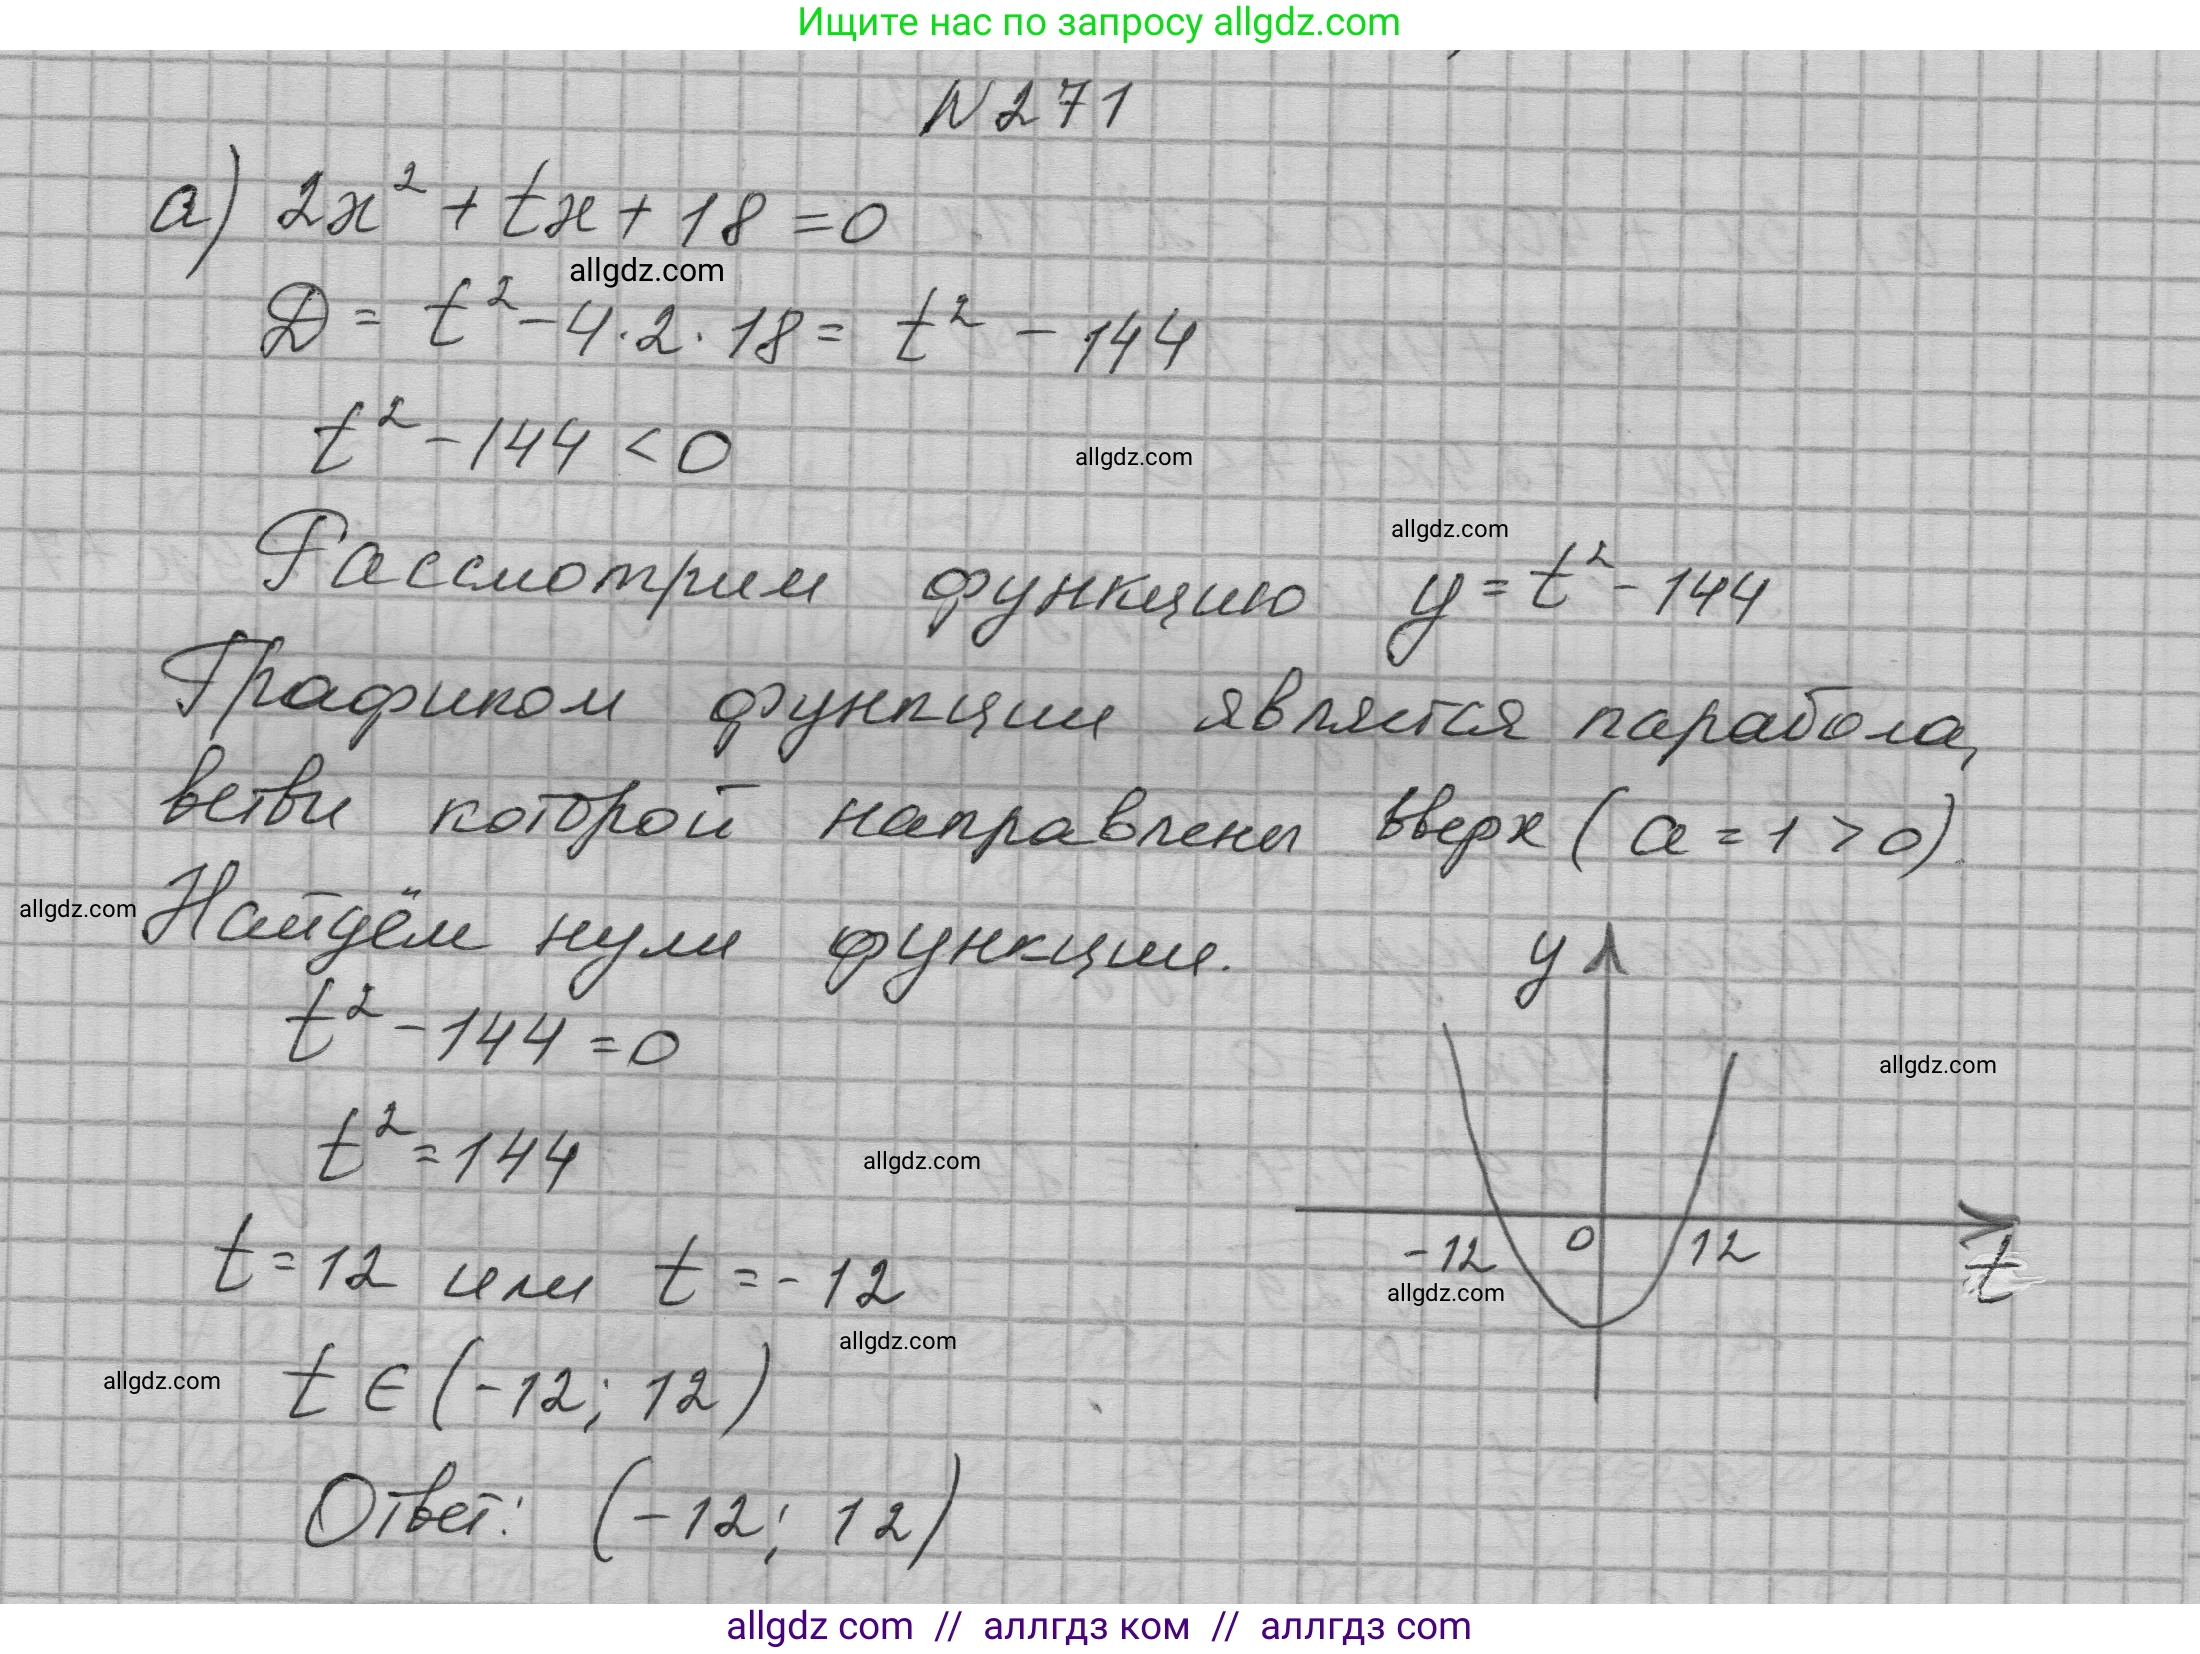 Ищите нас по запросу allgdz.com
N 271
а) 2x² + tx + 18 = 0
allgdz.com
Д = t² - 4·2·18 = t² - 144
t² - 144 < 0
allgdz.com
allgdz.com
Рассмотрим функцию y = t² - 144
Графиком функции является парабола,
ветви которой направлены вверх (a = 1 > 0).
allgdz.com
Найдём нули функции.
y
t² - 144 = 0
allgdz.com
t² = 144
allgdz.com
-12 0 12 t
t = 12 или t = -12
allgdz.com
allgdz.com
allgdz.com
t ∈ (-12; 12)
Ответ: (-12; 12)
allgdz com // аллгдз ком // аллгдз com